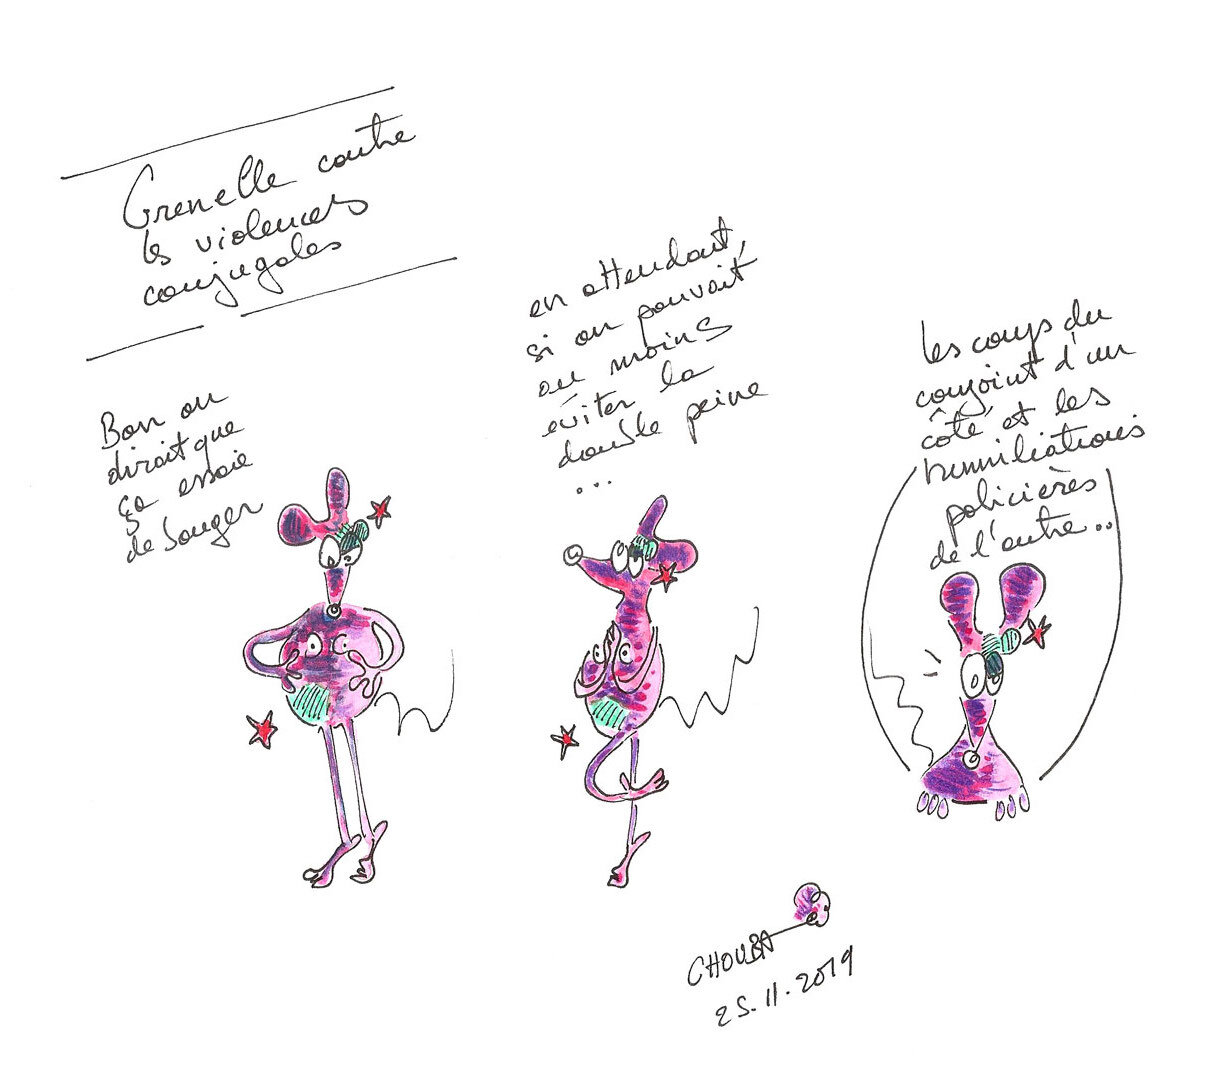 Grenelle contre
les violences
conjugales
Bon on
dirait que
ça essaie
de bouger
en attendant,
si on pouvait
au moins
éviter la
double peine
...
les coups du
conjoint d'un
côté et les
humiliations
policières
de l'autre..
CHOUBA
25.11.2019